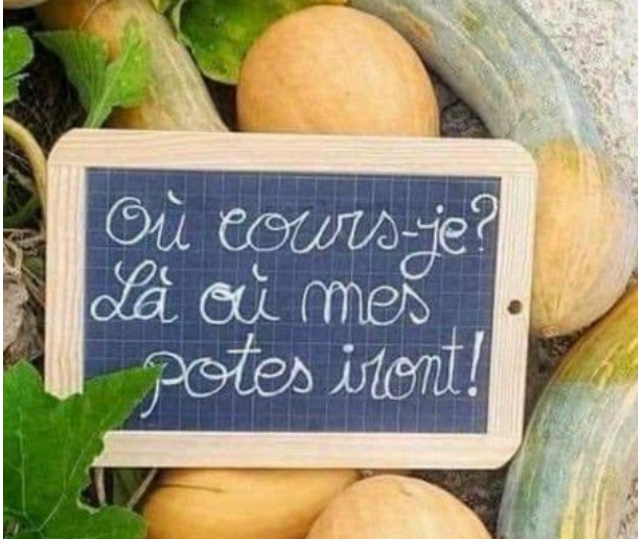 Où cours-je?
Là où mes
potes iront!